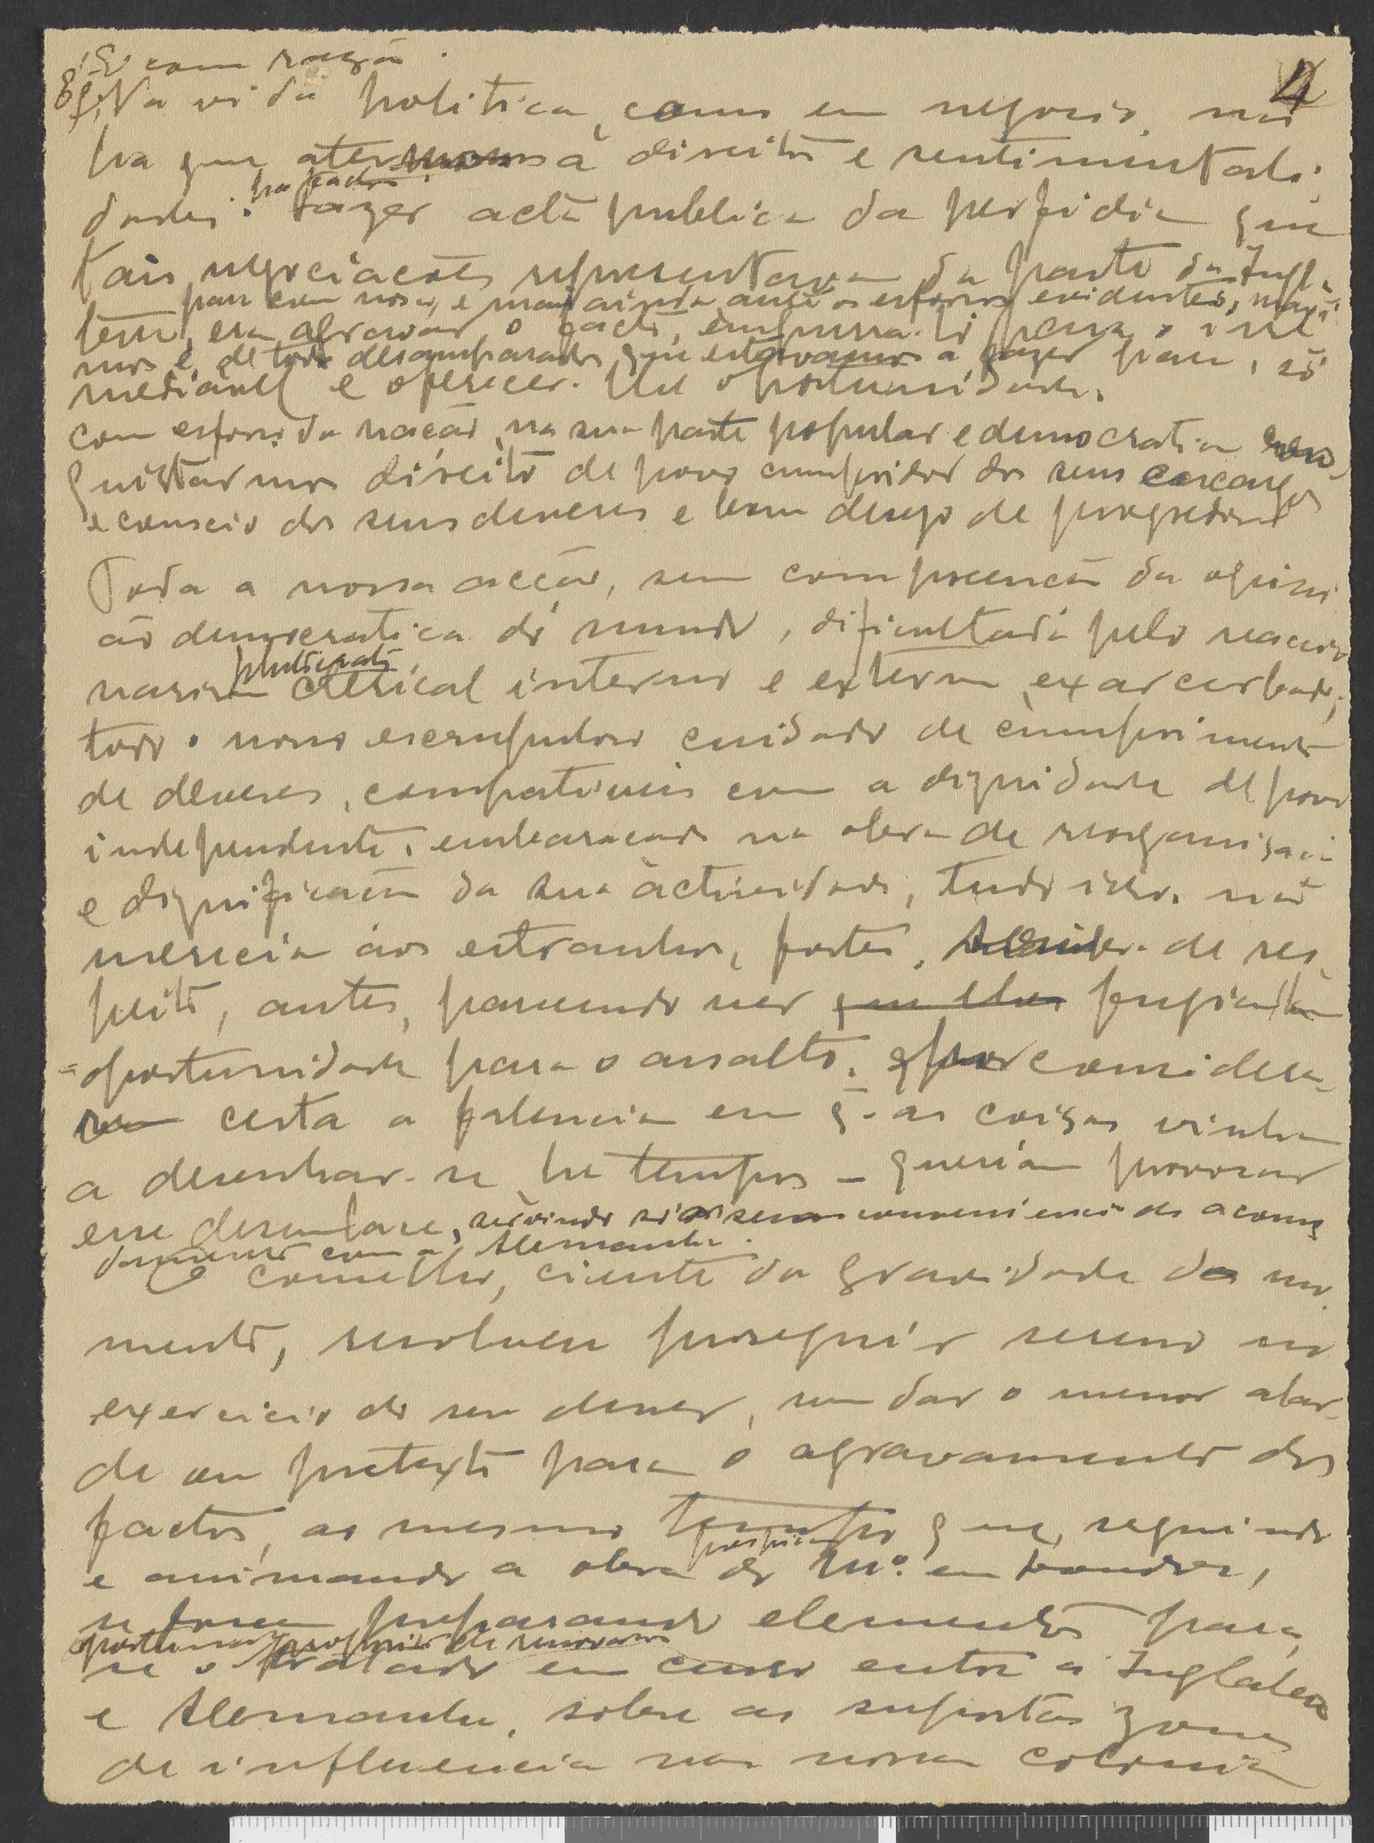 E com razão.
4
Na vida politica, como em negocio, não
ha que ater a direitos e sentimentali-
dades. fazer acta publica da perfidia que
tais negociações representavam da parte da Ingla-
para com nosco, e mais ainda ante os esforços evidentes,
terra, era agravar o facto, o
e, de todo desamparados, que estavamos a fazer para, só
e oferecer-lhe oportunidade.
com esforço da nação, na sua parte popular e democratica
quistarmos direito de povo cumpridor dos seus encargos
e conscio dos seus deveres e bom desejo de progredir
Toda a nossa acção, sem compreensão da opini-
ão democratica do mundo, dificultada pelo reaccio-
plutocrata
narismo clerical interno e externo exarcerbado;
todo o nosso escrupuloso cuidado de cumprimento
de deveres, compativeis com a dignidade de povo
independente, embaraçado na obra de reorganisação
e dignificação da sua actividade, tudo isso, não
merecia aos estranhos, fortes, de res-
peito, antes, parecendo ver que lhes fugia
oportunidade para o assalto, e por considera-
rem certa a falencia em q. as coisas vinham
a desenhar-se ha tempos - queriam provocar
esse desenlace, servindo conveniencia de acomo-
damento com a Alemanha.
O conselho, ciente da gravidade do mo-
mento, resolveu proseguir sereno no
exercicio do seu dever, sem dar o menor alar-
de ou pretexto para o agravamento dos
factos, ao mesmo tempo que, seguindo
e animando a obra do M.º em Londres,
se fossem preparando elementos para,
se o tratado em curso entre a Inglaterra
e Alemanha, sobre as supostas zonas
de influencia nas nossas colonias